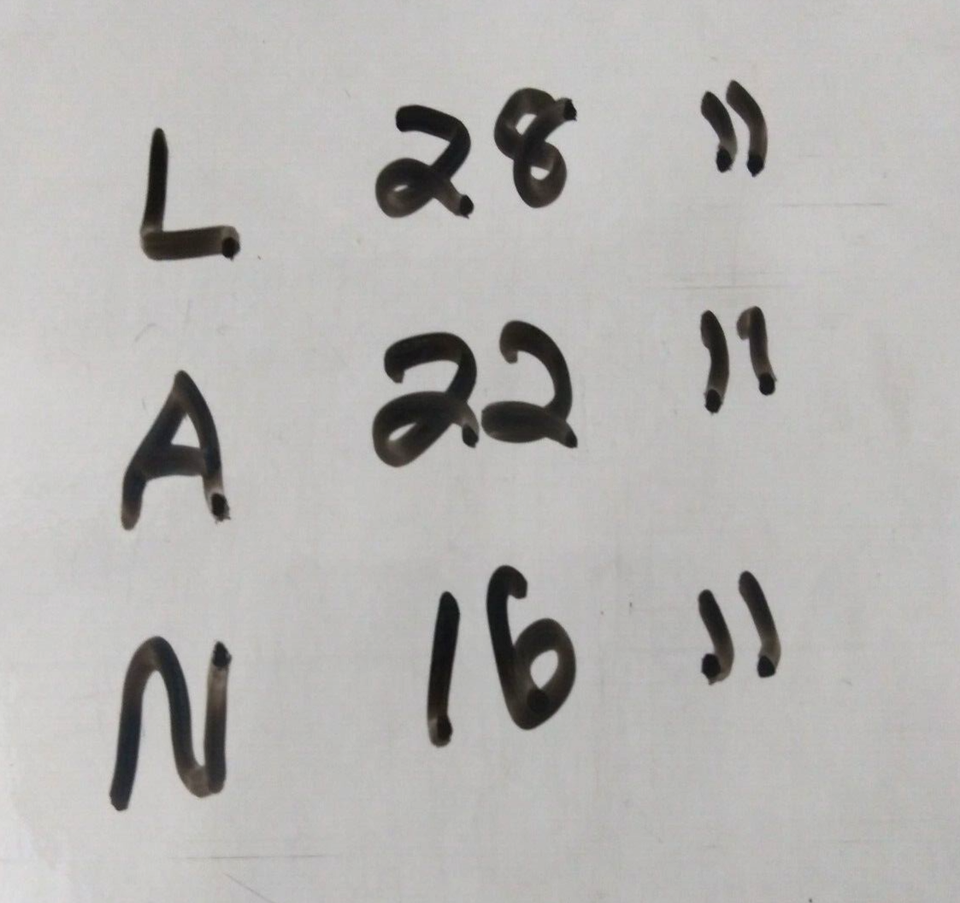 L 28 "
A 22 "
N 16 "